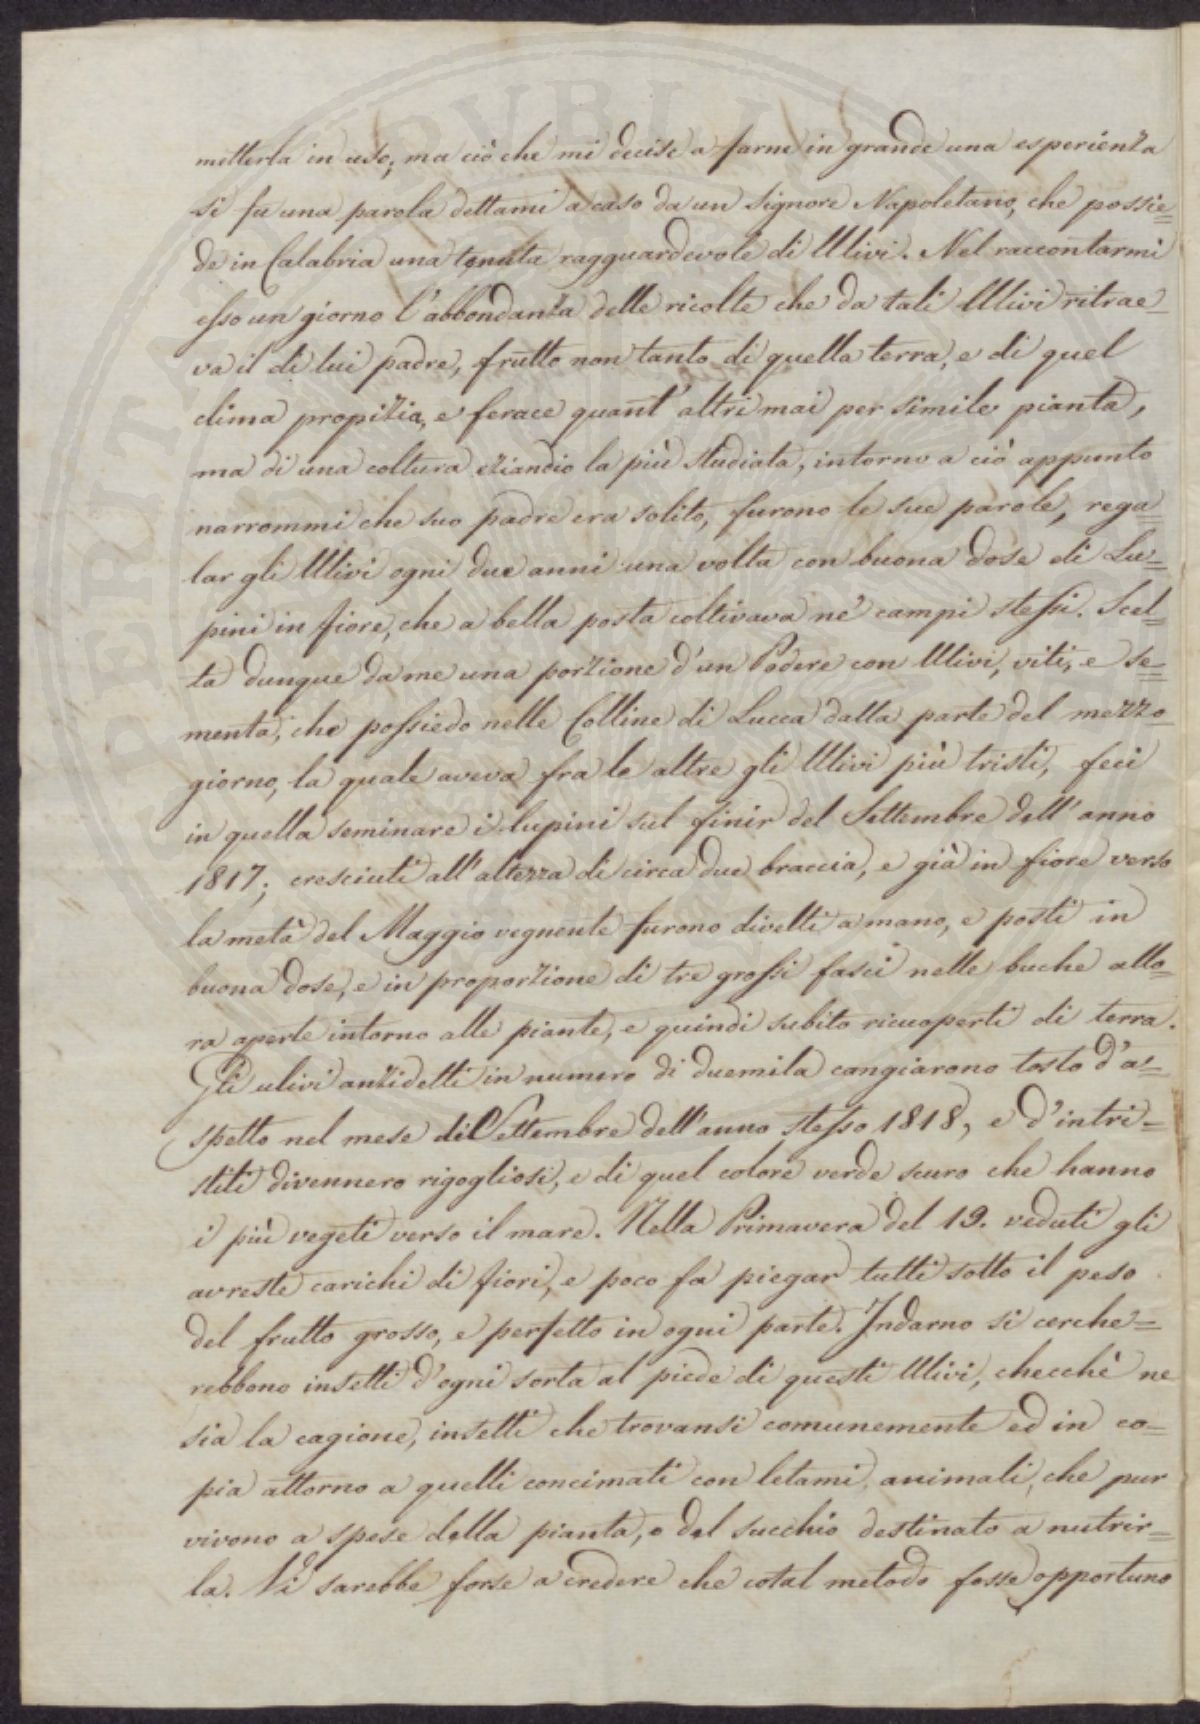 metterla in uso, ma ciò che mi decise a farne in grande una esperienza
si fu una parola dettami a caso da un Signore Napoletano, che possie=
de in Calabria una tenuta ragguardevole di Ulivi. Nel raccontarmi
esso un giorno l'abbondanza delle ricolte che da tali Ulivi ritrae=
va il di lui padre, frutto non tanto di quella terra, e di quel
clima propizia, e ferace quant' altri mai per simile pianta,
ma di una coltura eziandio la più studiata, intorno a ciò appunto
narrommi che suo padre era solito, furono le sue parole, rega=
lar gli Ulivi ogni due anni una volta con buona dose di Lu=
pini in fiore, che a bella posta coltivava ne' campi stessi. Scel=
ta dunque da me una porzione d'un Podere con Ulivi, viti, e se=
menta, che possiedo nelle Colline di Lucca dalla parte del mezzo=
giorno, la quale aveva fra le altre gli Ulivi più tristi, feci
in quella seminare i lupini sul finir del Settembre dell' anno
1817; cresciuti all' altezza di circa due braccia, e già in fiore verso
la metà del Maggio vegnente furono divelti a mano, e posti in
buona dose, e in proporzione di tre grossi fasci nelle buche allo=
ra aperte intorno alle piante, e quindi subito ricuoperti di terra.
Gli ulivi anzidetti in numero di duemila cangiarono tosto d'a=
spetto nel mese di Settembre dell' anno stesso 1818, e d'intri=
stiti divennero rigogliosi, e di quel colore verde scuro che hanno
i più vegeti verso il mare. Nella Primavera del 19. veduti gli
avreste carichi di fiori, e poco fa piegar tutti sotto il peso
del frutto grosso, e perfetto in ogni parte. Indarno si cerche=
rebbono insetti d'ogni sorta al piede di questi Ulivi, checchè ne
sia la cagione, insetti che trovansi comunemente ed in co=
pia attorno a quelli concimati con letami animali, che pur
vivono a spese della pianta, o del succhio destinato a nutrir=
la. Vi sarebbe forse a credere che cotal metodo fosse opportuno